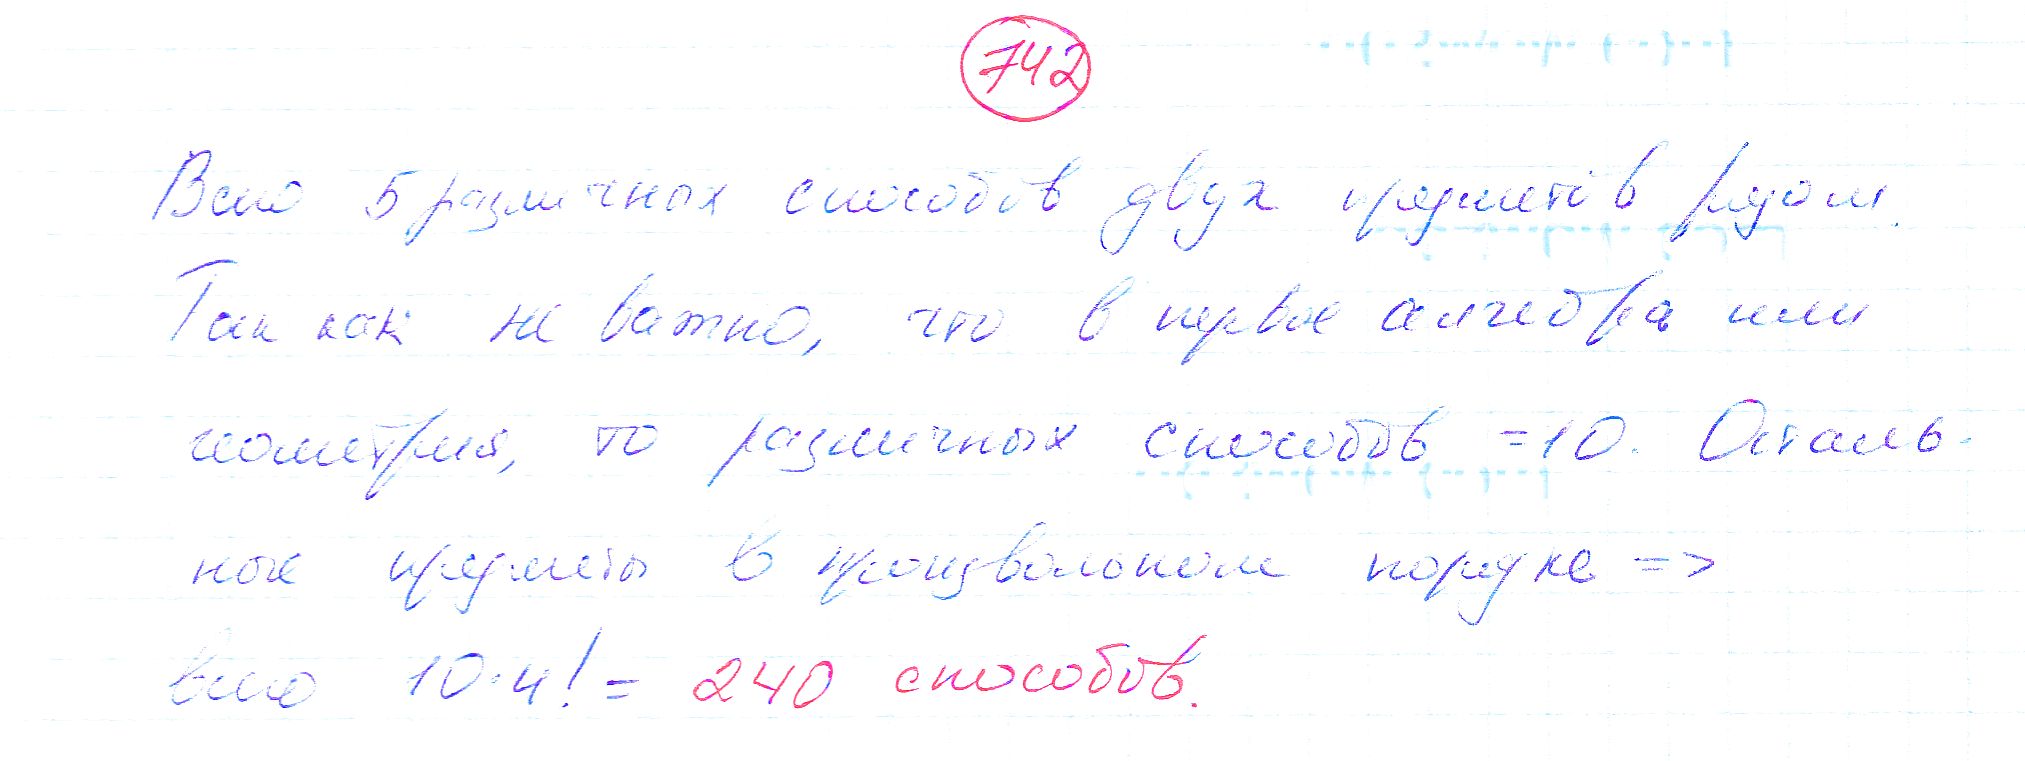 742
Всего 5 различных способов двух предметов рядом.
Так как не важно, что в первое алгебра или
геометрия, то различных способов =10. Осталь-
ные предметы в произвольном порядке =>
всего 10·4! = 240 способов.